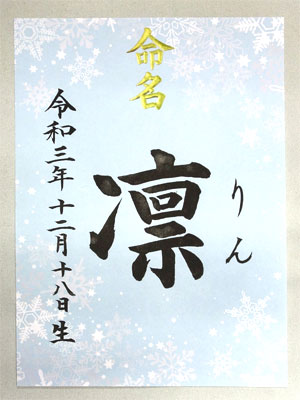 命名
りん
凛
令和三年十二月十八日生